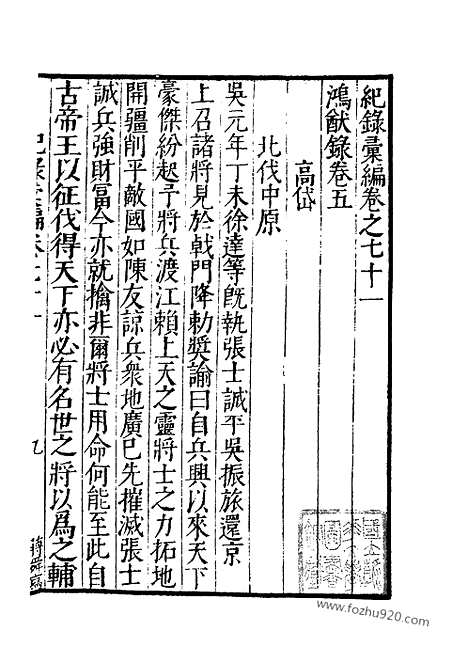 紀錄彙編卷之七十一
鴻猷錄卷五
高岱
北伐中原
吳元年丁未徐達等既執張士誠平吳振旅還京
上召諸將見於戟門降勑獎諭曰自兵興以來天下
豪傑紛起予將兵渡江賴上天之靈將士之力拓地
開疆削平敵國如陳友諒兵衆地廣已先摧滅張士
誠兵強財富今亦就擒非爾將士用命何能至此自
古帝王以征伐得天下亦必有名世之將以爲之輔
https://www.fozhu920.com/